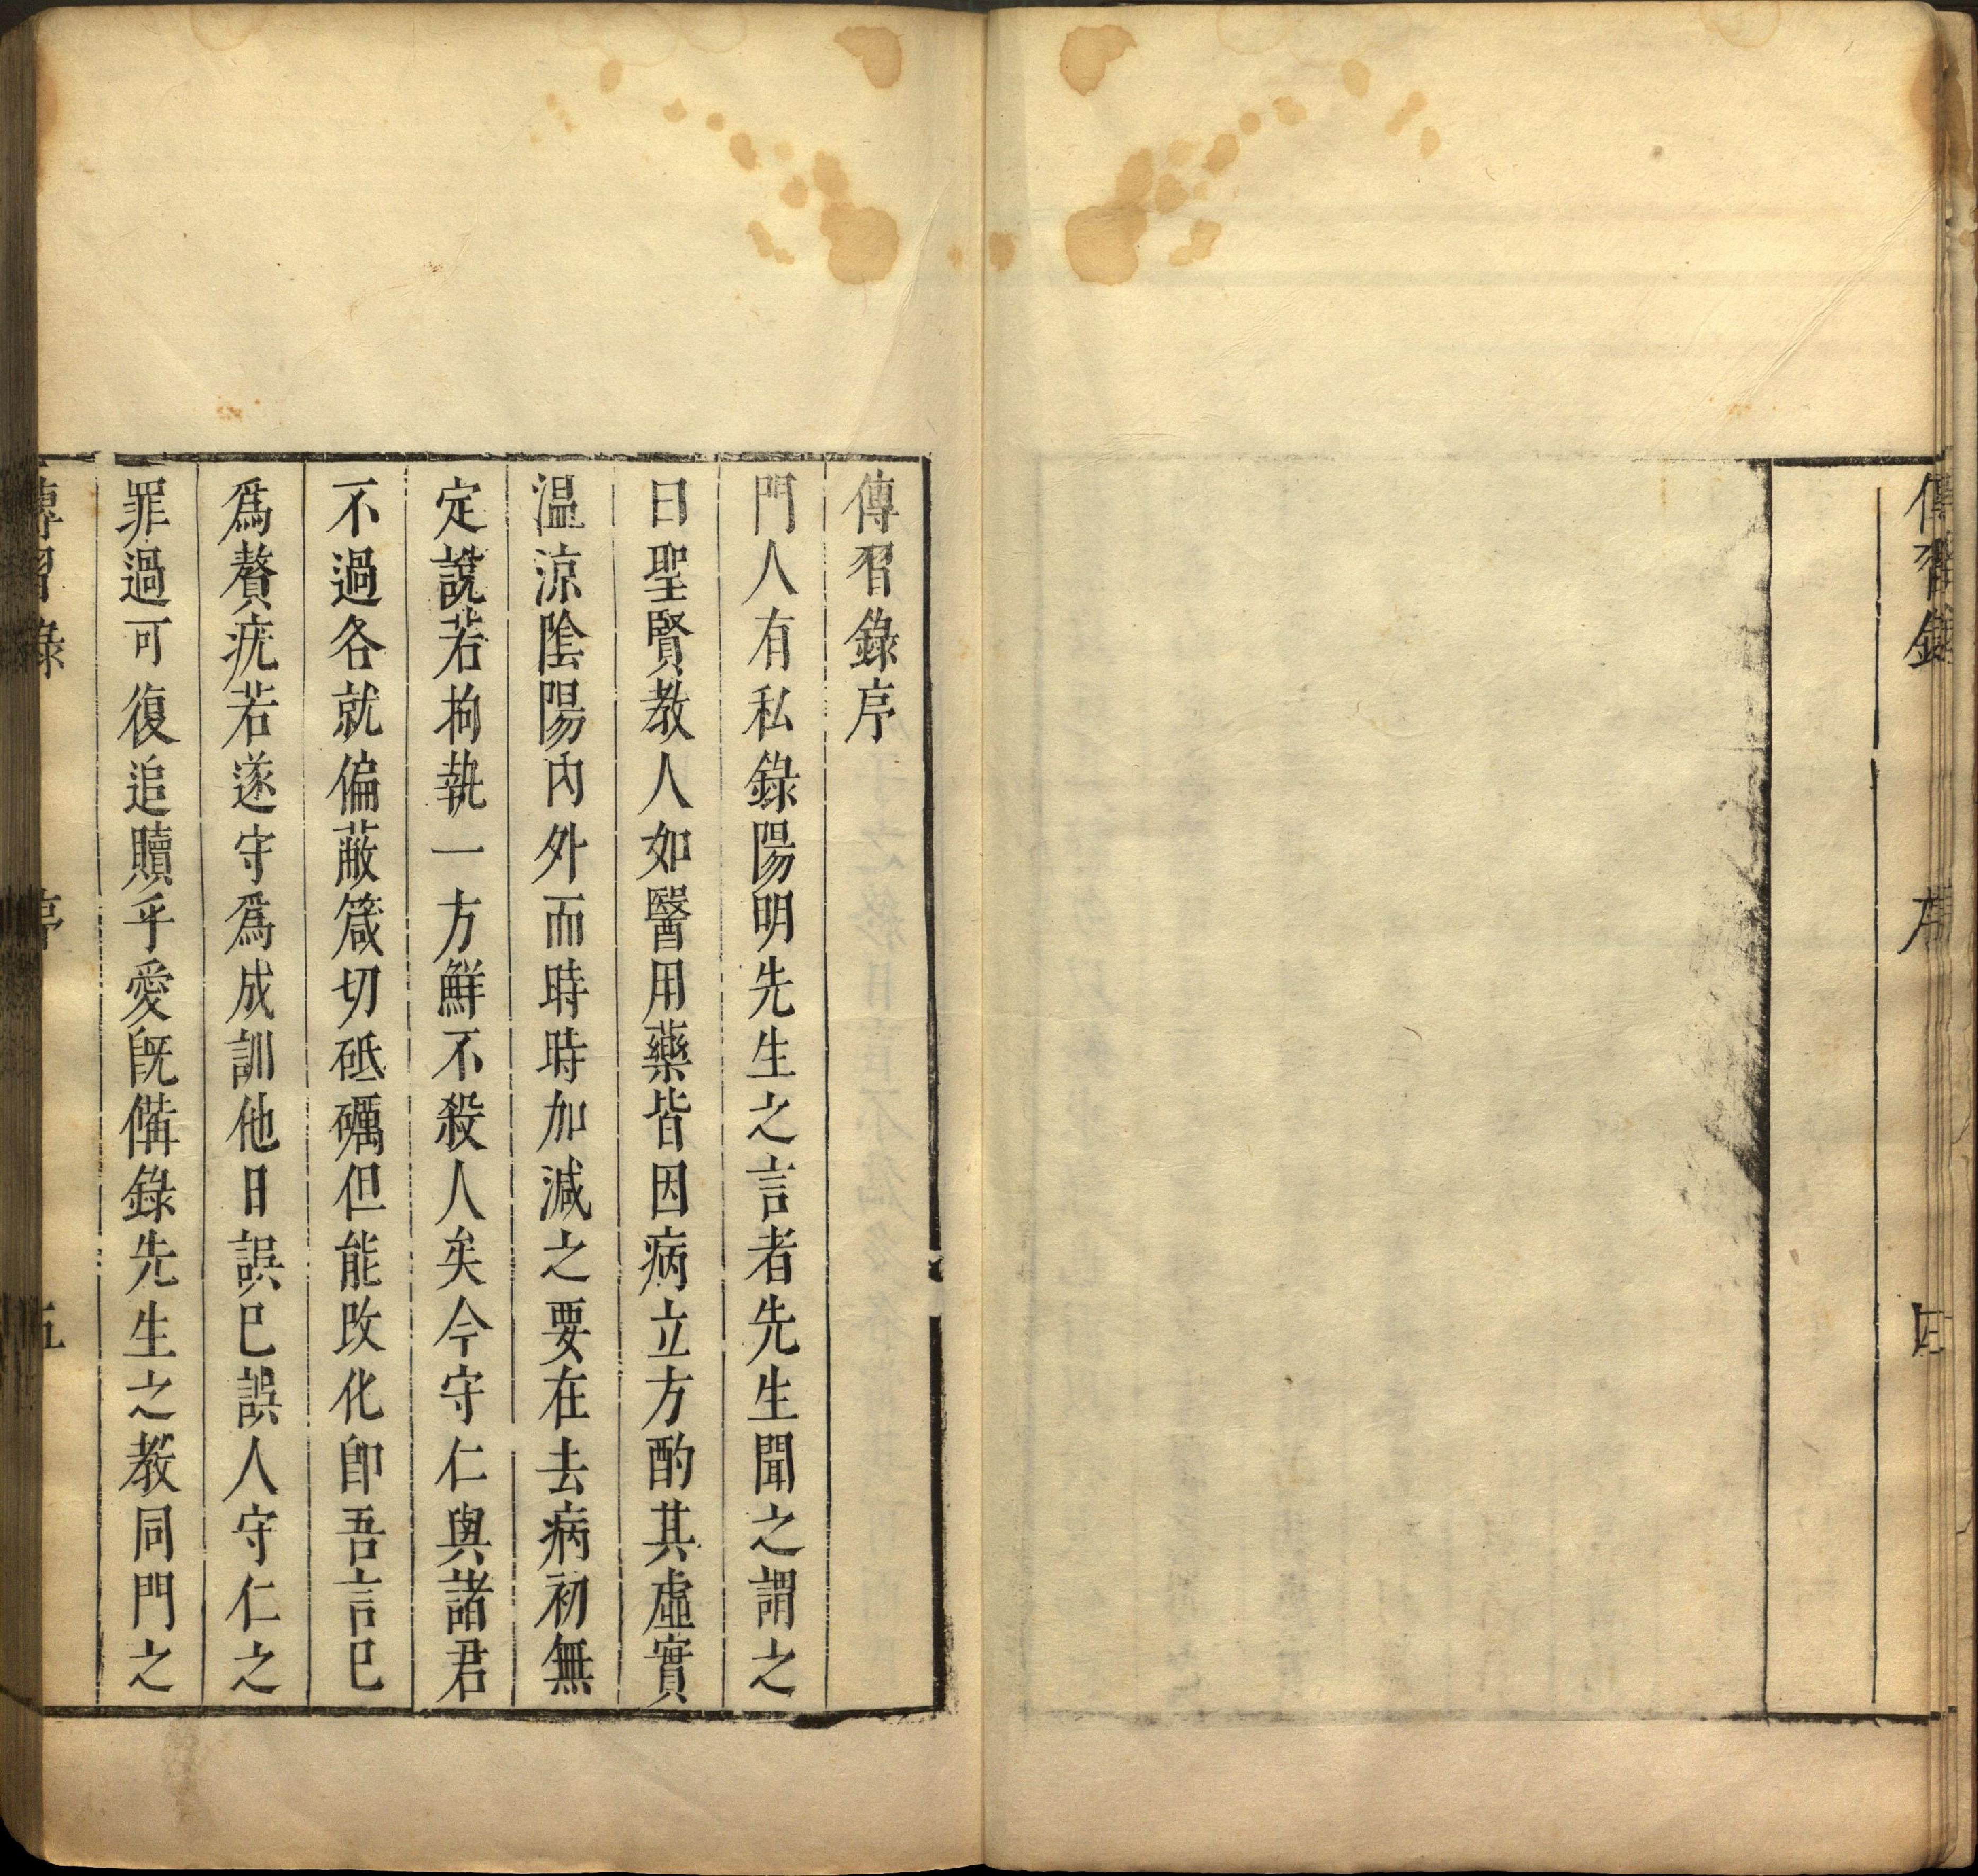 傳習錄
序
四
傳習錄序
門人有私錄陽明先生之言者先生聞之謂之
曰聖賢教人如醫用藥皆因病立方酌其虛實
温涼陰陽內外而時時加減之要在去病初無
定說若拘執一方鮮不殺人矣今守仁與諸君
不過各就偏蔽箴切砥礪但能改化卽吾言已
爲贅疣若遂守爲成訓他日誤已誤人守仁之
罪過可復追贖乎愛旣備錄先生之教同門之
傳習錄
序
五